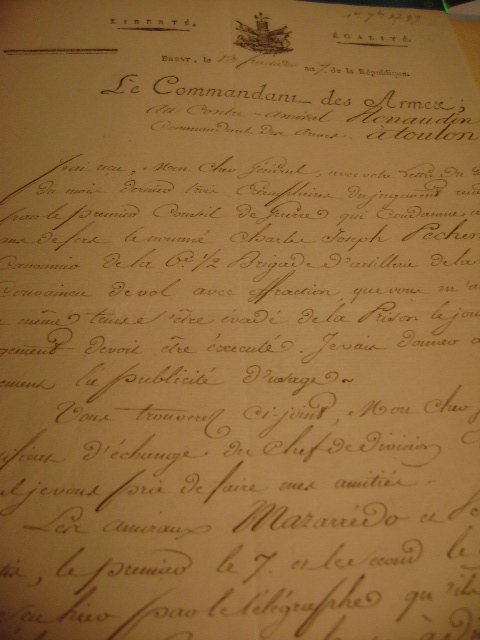 LIBERTÉ.
ÉGALITÉ.
BREST, le
an 7. de la République.
Le Commandant des Armes,
au Contre-amiral
Commandant des armes. à toulon
J'ai reçu, Mon cher Général, avec votre lettre du
du mois dernier trois Exemplaires du jugement
par le premier Conseil de Guerre qui Condamne, a
ans de fers le nommé Charles Joseph
de la 6e 1/2 Brigade d'artillerie de la
Convaincu de vol avec effraction, que vous m'a
même temps s'être évadé de la Prison le jour
devoit être éxécuté. Je vais donner
la publicité d'usage.
Vous trouverez ci-joint, Mon cher
d'échange du Chef de Division
je vous prie de faire mes amitiés.
Les amiraux Mazarrédo et
le premier le 7. et le second le
hier par le télégraphe qu'ils